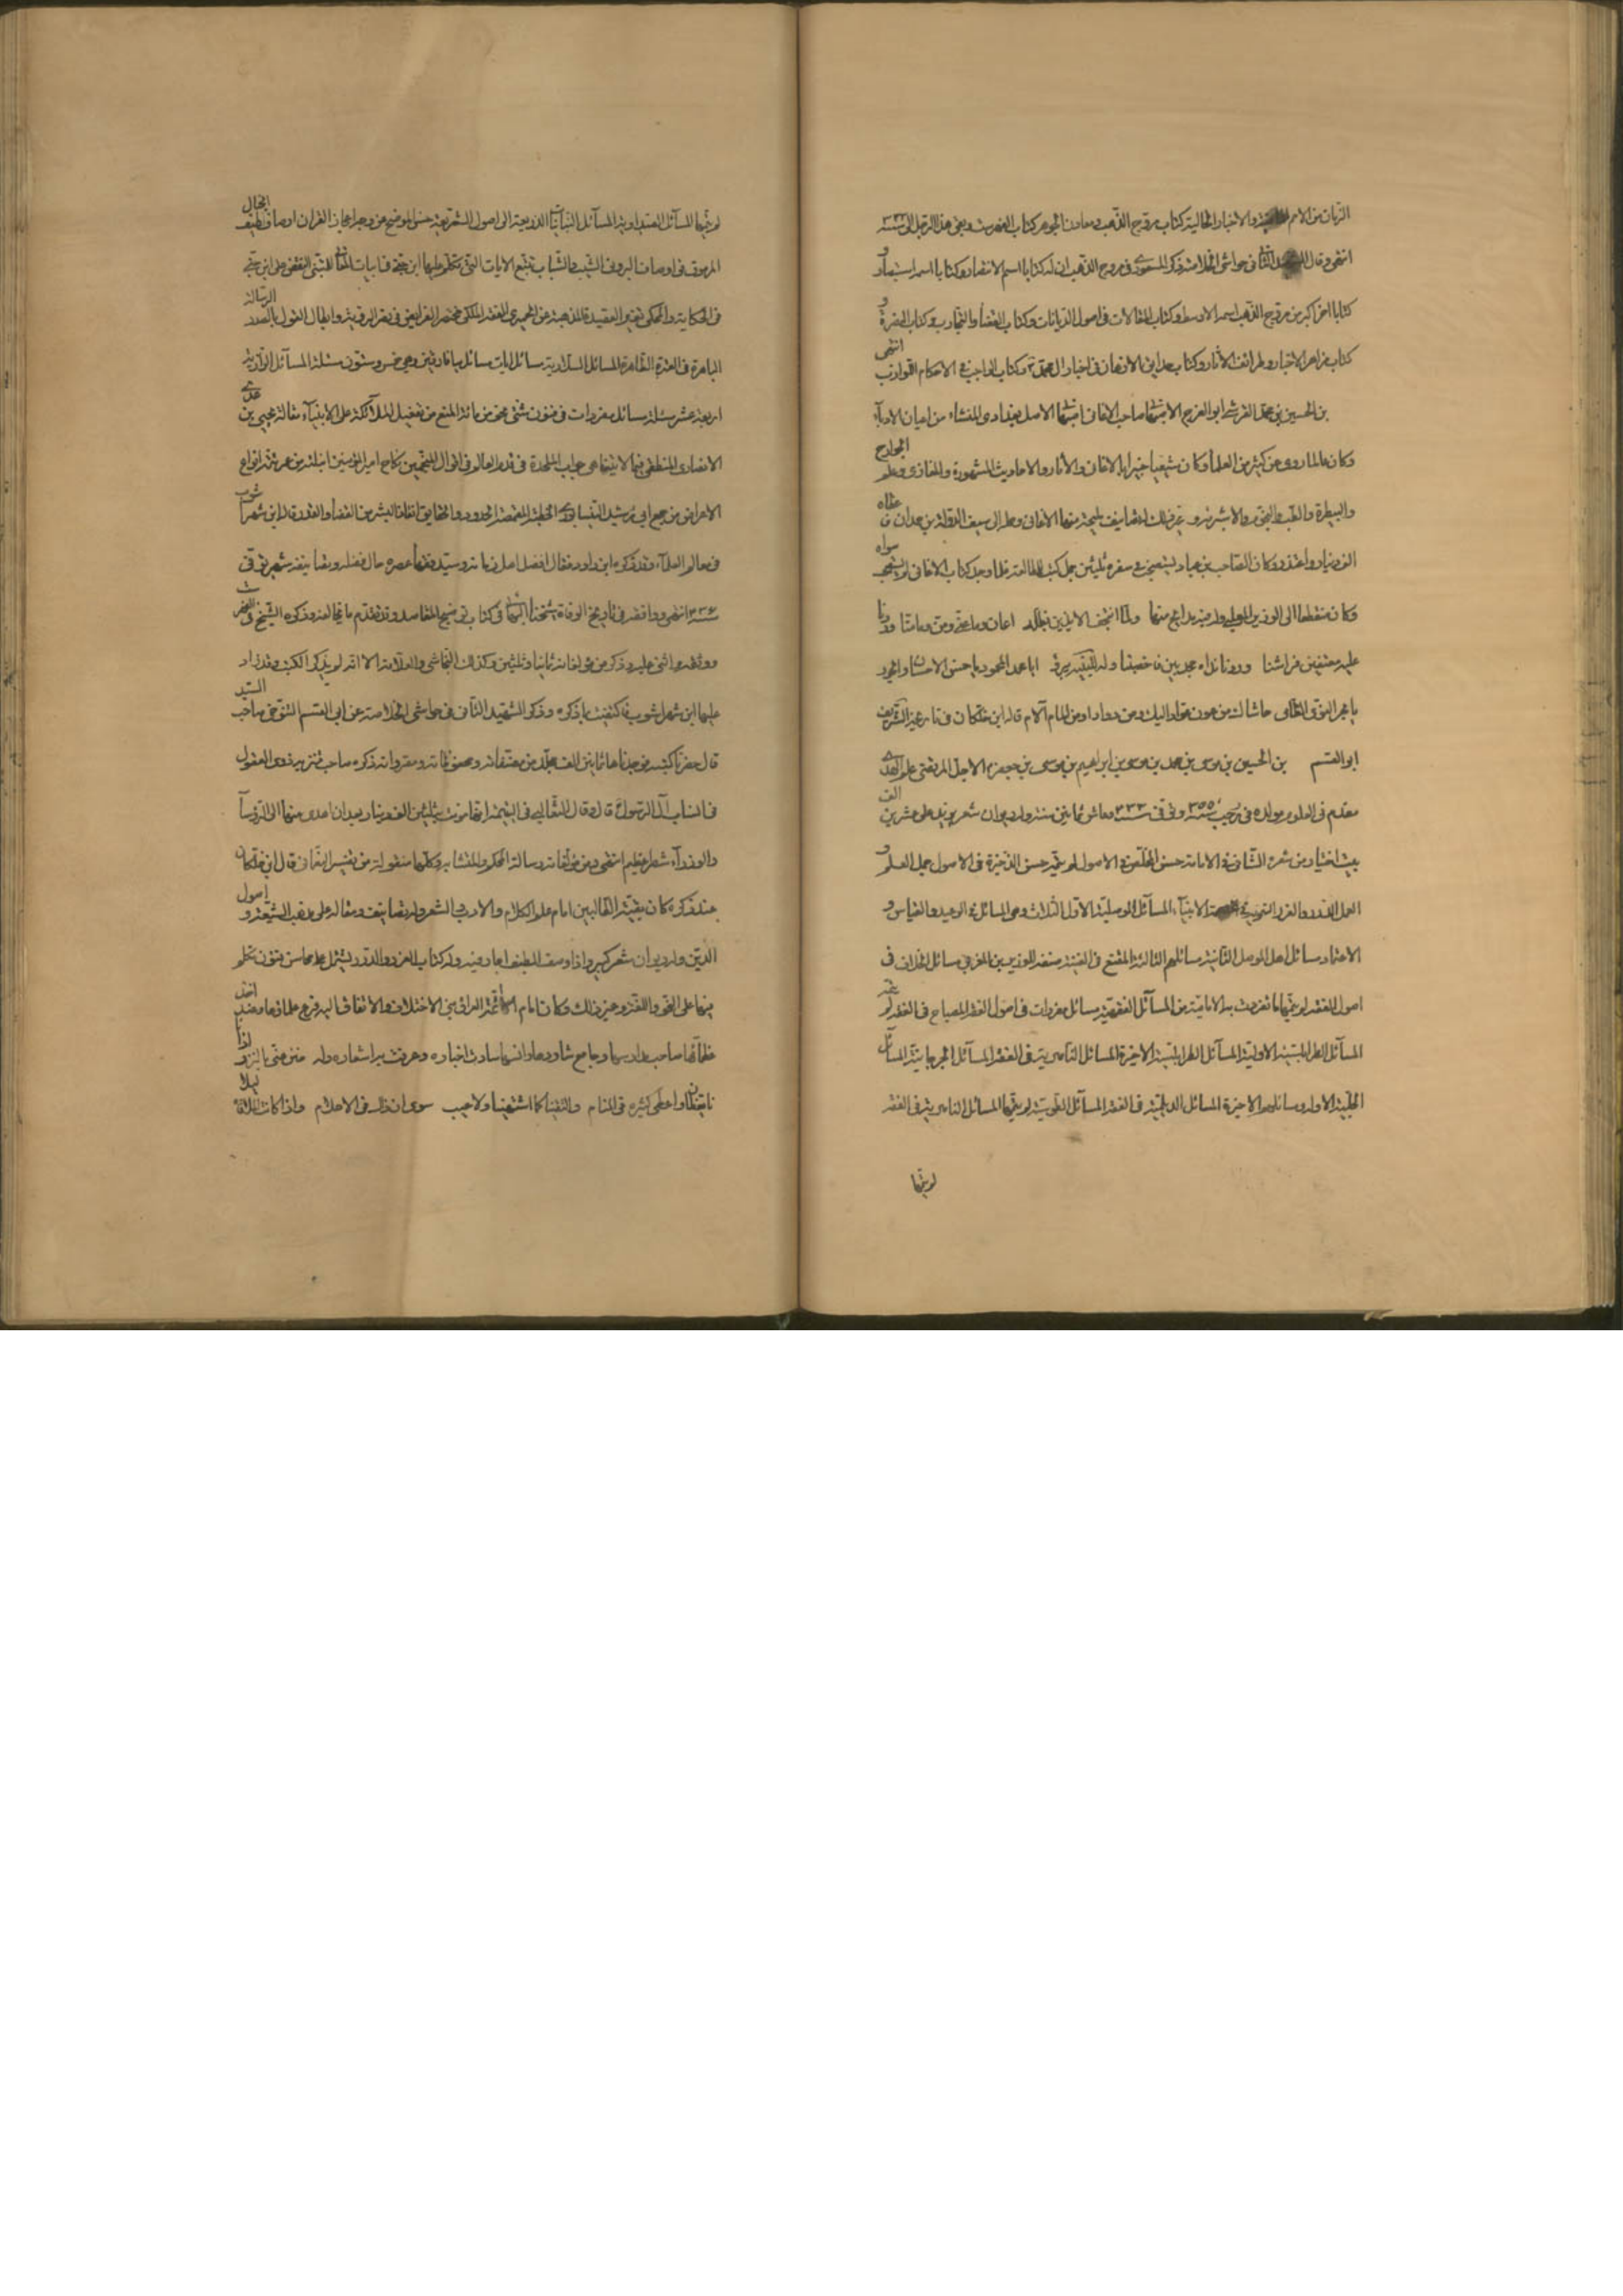 الزمان من الامم والاخبار الخالية كتاب مروج الذهب ومعادن الجوهر كتاب الفهرست وبقى هذا الرجل الى سنة ٣٣٣
انتهى وقال الشهيد الثانى فى حواشى الخلاصة ذكر المسعودى فى مروج الذهب ان له كتابا اسمه الانتصار وكتابا اسمه استبصار و
كتابا اخر اكبر من مروج الذهب اسمه الاوسط وكتاب المقالات فى اصول الديانات وكتاب القضاء والتجارب وكتاب النصرة و
كتاب مزاهر الاخبار وطرائف الاثار وكتاب حدايق الاذهان فى اخبار ال محمد ص وكتاب الواجب فى الاحكام اللوازب انتهى
بن الحسين بن محمد القرشى ابو الفرج الاصبهانى صاحب الاغانى اصبهانى الاصل بغدادى المنشاء من اعيان الادباء
وكان عالما روى عن كثير من العلماء وكان شيعيا خبيرا بالاغانى والآثار والاحاديث المشهورة والمغازى وعلم الجوارح
والبيطرة والطب والنجوم والاشربة وغير ذلك له تصانيف مليحة منها الاغانى وحمله الى سيف الدولة بن حمدان فاعطاه
الف دينار واعتذر وكان الصاحب بن عباد يستصحب فى سفره ثلثين جمل كتب للمطالعة فلما وجد كتاب الاغانى لم يستصحب سواه
وكان منقطعا الى الوزير المهلبى وله فيه مدايح منها ولما انتجعنا لائذين بظله اعان وما عنى ومن وما منا وردنا
عليه مقترين فراشنا وردنا نداه مجدبين فاخصبنا وله ابا محمد المحمود يا حسن الاحسان والجود
يا بحر الندى الطامى حاشاك من عود عواد اليك ومن دواء داء ومن المام آلام قاله ابن خلكان فى تاريخه الشريف
ابو القسم بن الحسين بن موسى بن محمد بن موسى بن ابراهيم بن موسى بن جعفر ع الاجل المرتضى علم الهدى
مقدم فى العلوم مولده فى رجب سنة ٣٥٥ وتوفى سنة ٤٣٣ وعاش ثمانين سنة وله ديوان شعر يزيد على عشرين الف
بيت اختياره من شعره الشافى فى الامامة حسن الملخص فى الاصول لم يتمه حسن الذخيرة فى الاصول جمل العلم و
العمل الغرر والدرر التنزيه فى عصمة الانبياء المسائل الموصلية الاولة الثلاث وهى المسائل فى الوعيد والقياس و
الاعتماد مسائل اهل الموصل الثانية مسائلهم الثالثة المقنع فى الغيبة صنفه للوزير بن المغربى مسائل الخلاف فى
اصول الفقه لم يتمها ما تفردت به الامامية من المسائل الفقهية مسائل مفردات فى اصول الفقه المصباح فى الفقه لم يتمه
المسائل الطرابلسية الاولية المسائل الطرابلسية الاخيرة المسائل الناصرية فى الفقه المسائل الجرجانية المسائل
الحلبية الاولة ومسائلهم الاخيرة المسائل الديلمية فى الفقه المسائل الطوسية لم يتمها المسائل الناصرية فى الفقه
لم يتمها
لم يتمها المسائل الصيداوية المسائل التبانيات الذريعة الى اصول الشريعة حسن الموضح عن وجه اعجاز القران اوصاف طيف الخيال
المرموق فى اوصاف البروق الشيب والشباب تتبع الابيات التى تكلم عليها ابن جنى فى ابيات المعانى للمتنبى النقض على ابن جنى
فى الحكاية والمحكى تفسير القصيدة المذهبة عن الحميرى الفقه الملكى مختصر الفرايض فى نصر الرؤية وابطال القول بالعدد الرسالة
الباهرة فى العترة الطاهرة المسائل السلارية مسائل آيات مسائل ميافارقين وهى خمس وستون مسئلة المسائل الرازية
اربعة عشر مسئلة مسائل مفردات فى فنون شتى نحو من مائة المنع من تفضيل الملائكة على الانبياء مقالة يحيى بن عدى
الانصارى المنطقى فيما لا يتناهى جواب الملحدة فى قدم العالم فى اقوال المنجمين نكاح امير المؤمنين ابنته من عمر تتمة انواع
الاعراض من جمع ابى رشيد النيسابورى الخطبة المقمصة الحدود والحقايق انقاذ البشر من القضاء والقدر قاله ابن شهرآشوب
فى معالم العلماء وقد ذكره ابن داود فقال افضل اهل زمانه وسيد فقهاء عصره حال فضله وتصانيفه شهير توفى
سنة ٤٣٦ انتهى ووافقه فى تاريخ الوفاة شيخنا البهائى فى كتاب توضيح المقاصد وقد تقدم ما يخالفه وذكره الشيخ فى الفهرست
ووثقه واثنى عليه وذكر من مؤلفاته ثمانيا وثلثين وكذلك النجاشى والعلامة الا انه لم يذكر الكتب وقد زاد
عليها ابن شهراشوب فاكتفيت بما ذكره وذكر الشهيد الثانى فى حواشى الخلاصة عن ابى القسم التنوخى صاحب السيد
قال حصرنا كتبه فوجدناها ثمانين الف مجلد من مصنفاته ومحفوظاته ومقرواته ذكره صاحب تنزيه ذوى العقول
فى انساب آل الرسول قال وقال الثعالبى فى اليتيمة انها قومت بثلثين الف دينار بعد ان اهدى منها الى الرؤساء
والوزراء شطر عظيم انتهى ومن مؤلفاته رسالة المحكم والمتشابه وكلها منقولة من تفسير النعمانى قال ابن خلكان
عند ذكره كان نقيب الطالبيين امام علم الكلام والادب والشعر وله تصانيف ومقالة على مذهب الشيعة واصول
الدين وله ديوان شعر كبير واذا وصف الطيف اجاد فيه وله كتاب الغرر والدرر يشتمل على محاسن فنون تكلم
فيها على النحو واللغة وغير ذلك وكان امام ائمة العراق بين الاختلاف والاتفاق اليه فزع علماؤها وعنه اخذ
عظماؤها صاحب مدارسها وجامع شاردها وآنسها سارت اخباره وعرفت به اشعاره وله ضن عنى بالنزر اذا
نا يقظان واعطى كثيره فى المنام والتقينا كما اشتهينا ولا عيب سوى ان ذاك فى الاحلام واذا كانت الملاقاة ليلا